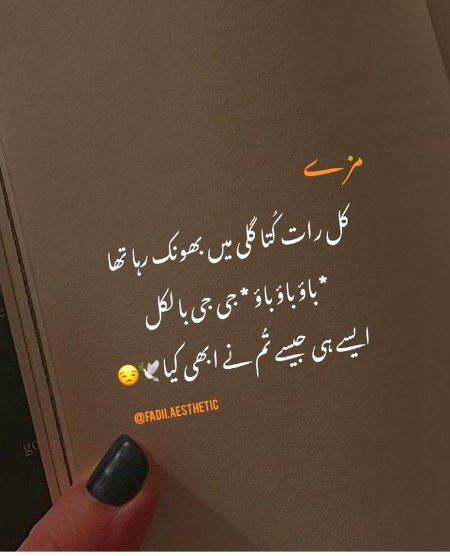 مزے
کل رات کُتا گلی میں بھونک رہا تھا
*باؤ باؤ باؤ * جی جی بالکل
ایسے ہی جیسے تُم نے ابھی کیا🕊️😒
@FADII.AESTHETIC
go